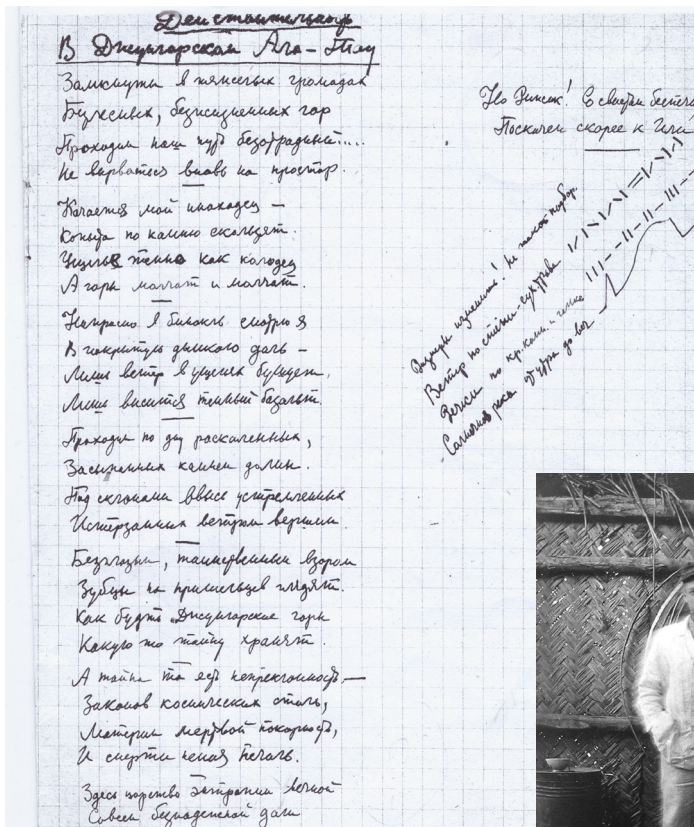 Действительность
В Джунгарской Ала-Тау
Замкнуты в тяжелых громадах
безжизненных гор
Проходил наш путь безотрадный....
Не вырваться вновь на простор.
Качается мой иноходец —
Копыта по камню скользят.
Ущелье темно как колодец
А горы молчат и молчат.
Напрасно в бинокль смотрю я
В покрытую дымкою даль —
Лишь ветер в ущельях бушует,
Лишь высится темный базальт.
Проходим по дну раскаленных,
Засыпанных камнем долин.
Под склонами ввысь устремленных
Истерзанных ветром вершин.
Безглазым, таинственным взором
Зубцы на пришельцев глядят.
Как будто Джунгарские горы
Какую то тайну хранят.
А тайна та есть непреклонность —
Законов космических сталь,
Материи мертвой покорность,
И смерти немая печаль.
Здесь царство Энтропии вечной
Совсем безнадежной дали
Но
Поскачем скорее к Или
изменить! Не такой подбор
Ветер по степи
по